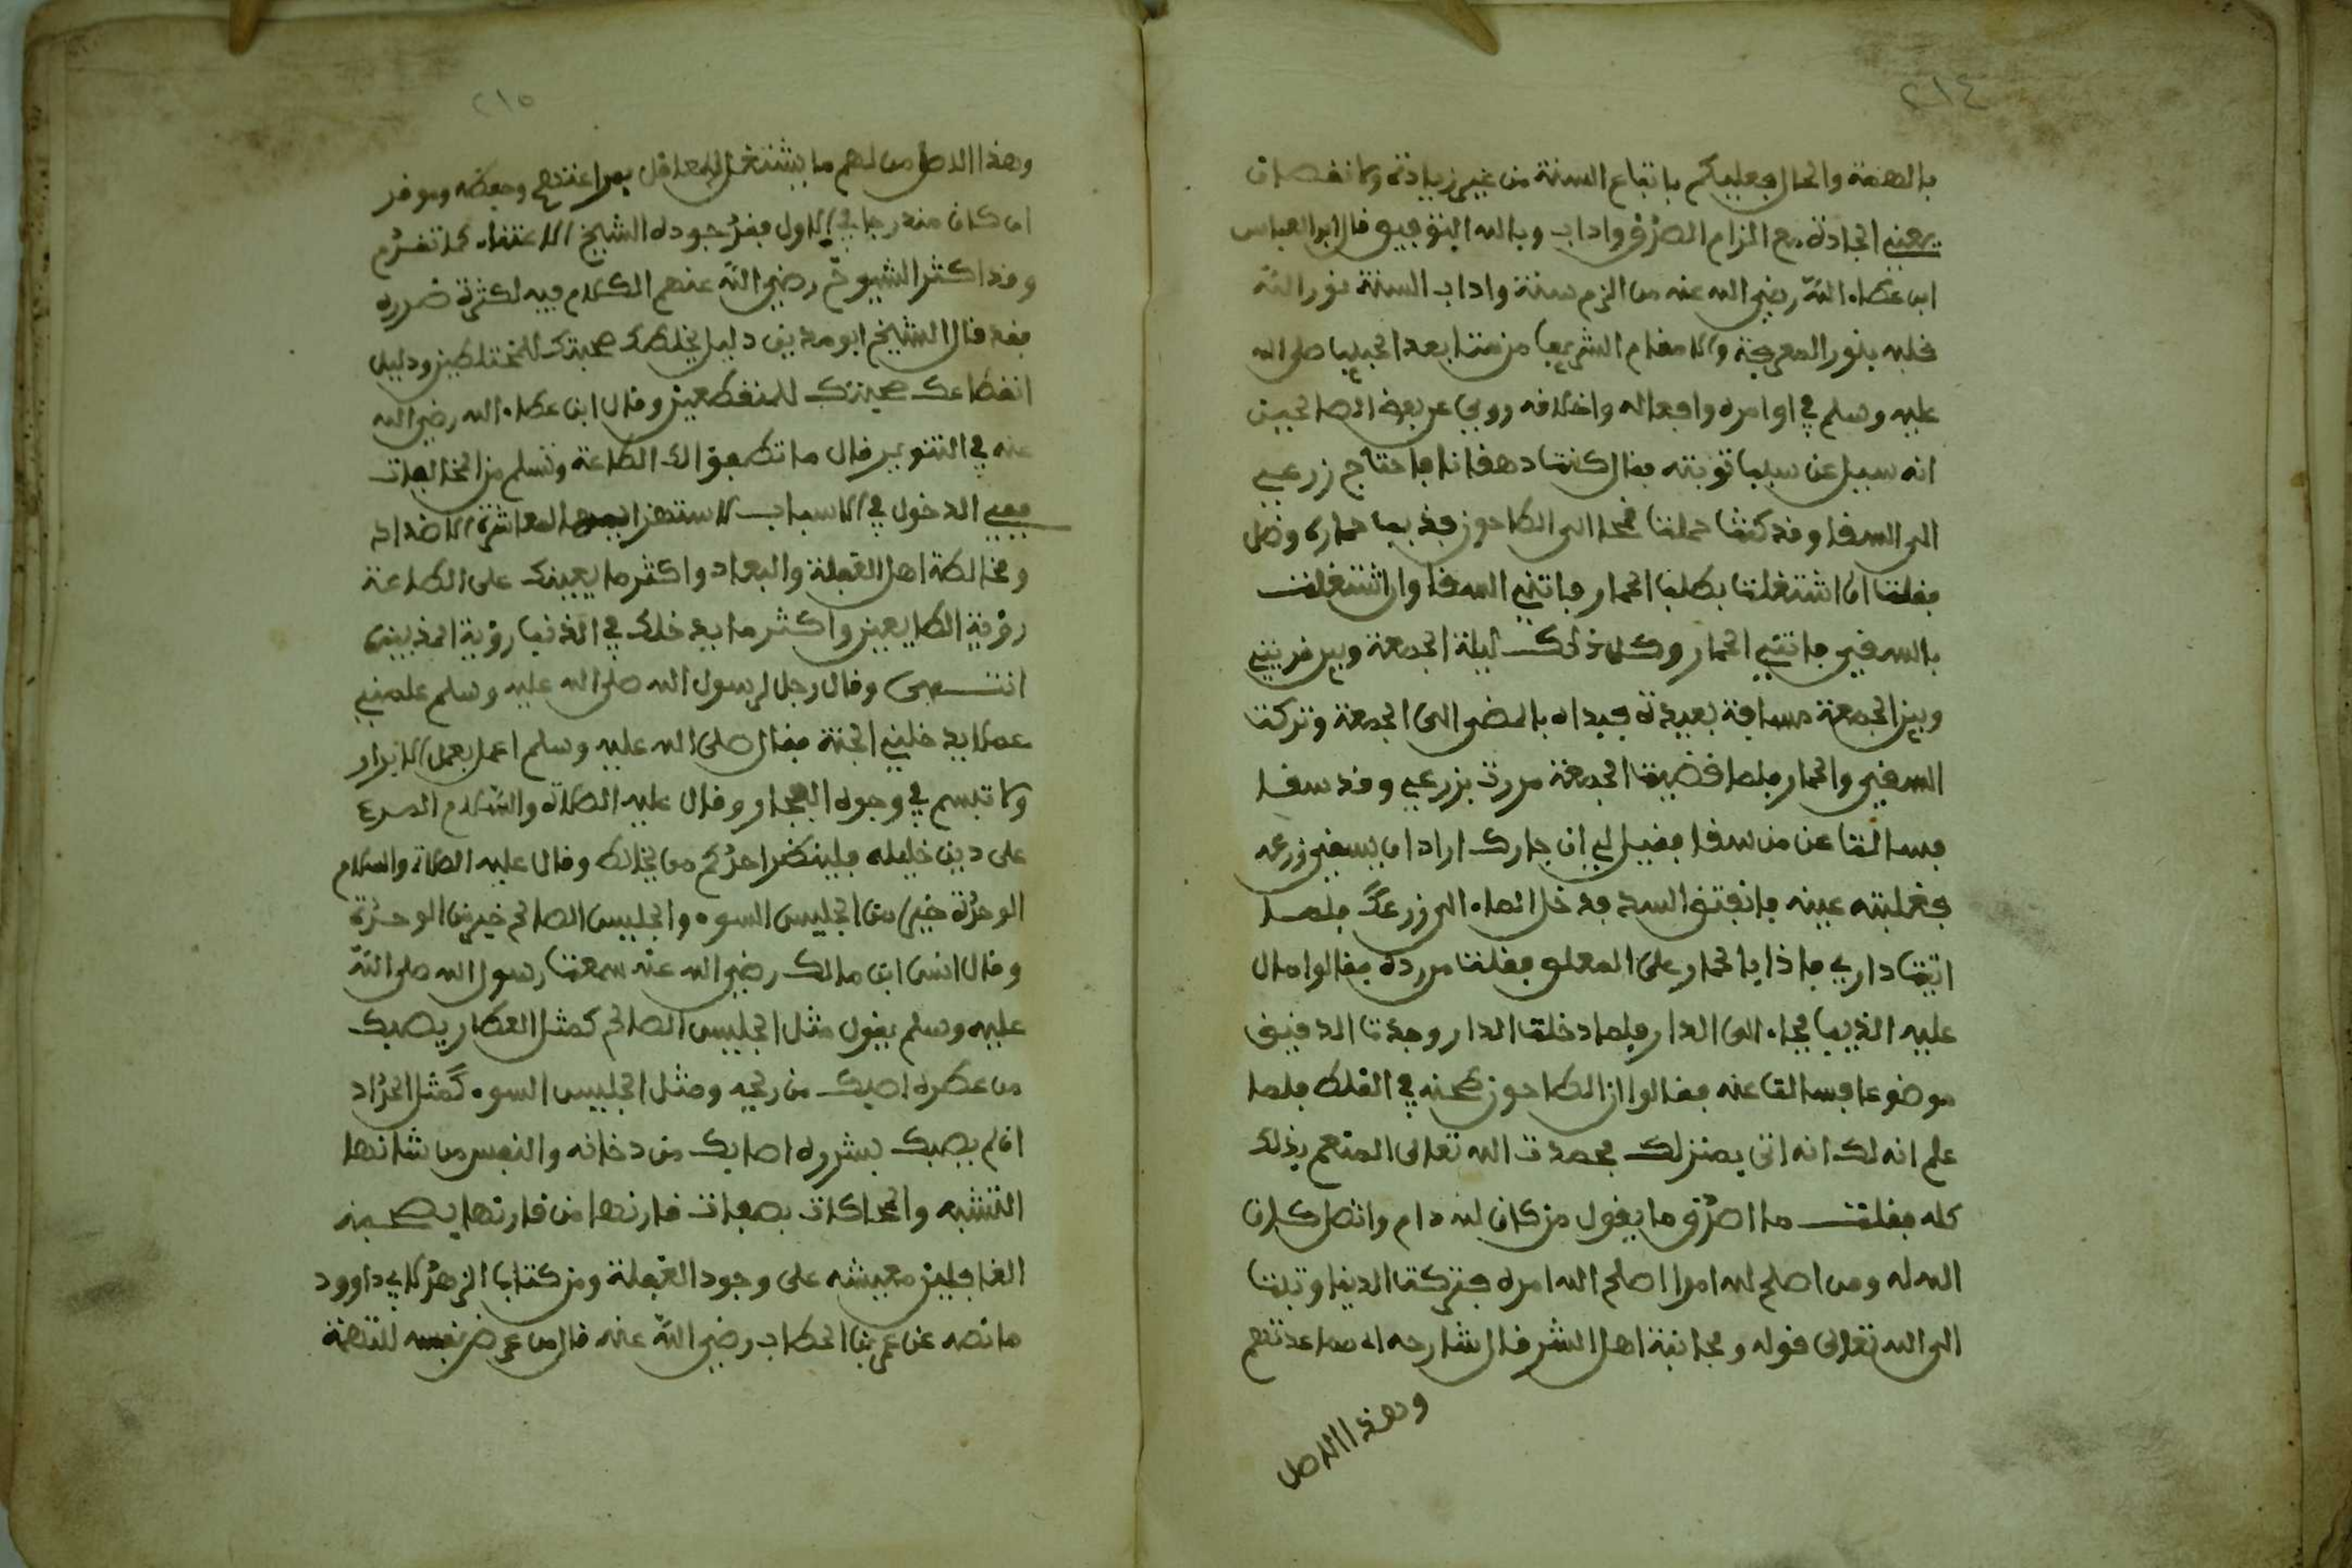 ٢١٤
بالهمة والحال فعليكم باتباع السنة من غير زيادة ولا نقصان
يعني الجادة مع التزام الصدق واداب وبالله التوفيق قال ابو العباس
ابن عطاء الله رضي الله عنه من الزم سنة واداب السنة نور الله
قلبه بنور المعرفة ولا مقام اشرف من متابعة الحبيب صلى الله
عليه وسلم في اوامره وافعاله واخلافه روي عن بعض الصالحين
انه سيل عن سبب توبته فقال كنت دهقانا فاحتاج زرعي
الى السقا وقد كنت حملت قمحا الى الطاحون فذهب حماري وضل
فقلت ان اشتغلت بطلب الحمار فاتني السقا وان اشتغلت
بالسقي فاتني الحمار وكان ذلك ليلة الجمعة وبين قريتي
وبين الجمعة مسافة بعيدة فبداه بالمضي الى الجمعة وتركت
السقي والحمار فلما قضيت الجمعة مررت بزرعي وقد سقا
فسالت عن من سقا فقيل لي ان جارك اراد ان يسقي زرعه
فغلبته عينه فانفتق السد فدخل الماء الى زرعك فلما
اتيت داري فاذا بالحمار على المعلف فقلت من رده فقالوا مال
عليه الذيب فجاء الى الدار فلما دخلت الدار وجدت الدقيق
موضوعا فسالت عنه فقالوا ان الطاحون طحنه في الغلط فلما
علم انه لك انه اتى بمنزلك فحمدت الله تعالى المنعم بذلك
كله فقلت ما اصدق ما يقول من كان لله دام واتصل كان
الله له ومن اصلح لله امرا اصلح الله امره فتركت الدنيا وتبت
الى الله تعالى قوله ومجانبة اهل الشر قال شارحه اي مباعدتهم
وهذا الاصل
٢١٥
وهذا الاصل من اهم ما يشتغل العاقل بمراعتهم وحفظه وهو قد
ان كان مندرجا في الاول فقد جوده الشيخ الاعتناء كما تقدم
وقد اكثر الشيوخ رضي الله عنهم الكلام فيه لكثرة ضرره
فقد قال الشيخ ابو مدين دليل تخلطك صحبتك للمختلطين ودليل
انقطاعك صحبتك للمنقطعين وقال ابن عطاء الله رضي الله
عنه في التنوير قال ما تطعوا لك الطاعة وتسلم من المخالفات
فمع الدخول في الاسباب لاستهزا المعاشرة الاضداد
ومخالطة اهل الغفلة والبعاد واكثر ما يعينك على الطاعة
رؤية الطايعين واكثر ما يدخلك في الذنب رؤية المذنبين
انتهى وقال رجل لرسول الله صلى الله عليه وسلم علمني
عملا يدخلني الجنة فقال صلى الله عليه وسلم اعمل بعمل الابرار
ولا تبسم في وجوه الفجار وقال عليه الصلاة والسلام المرء
على دين خليله فلينظر احدكم من يخالط وقال عليه الصلاة والسلام
الوحدة خير من الجليس السوء والجليس الصالح خير من الوحدة
وقال انس ابن مالك رضي الله عنه سمعت رسول الله صلى الله
عليه وسلم يقول مثل الجليس الصالح كمثل العطار يصبك
من عطره اصبك من ريحه ومثل الجليس السوء كمثل الحداد
ان لم يصبك بشرره اصابك من دخانه والنفس من شانها
التشبه والمحاكات بصفات قارنها من قارنها بصحبته
الغافلين معيشه على وجود الغفلة ومن كتاب الزهد لابي داوود
ما نصه عن عمر بن الخطاب رضي الله عنه قال من عرض نفسه للتهمة